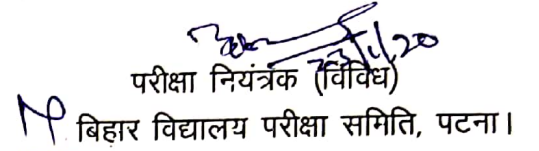 23/1/20
परीक्षा नियंत्रक (विविध)
बिहार विद्यालय परीक्षा समिति, पटना।